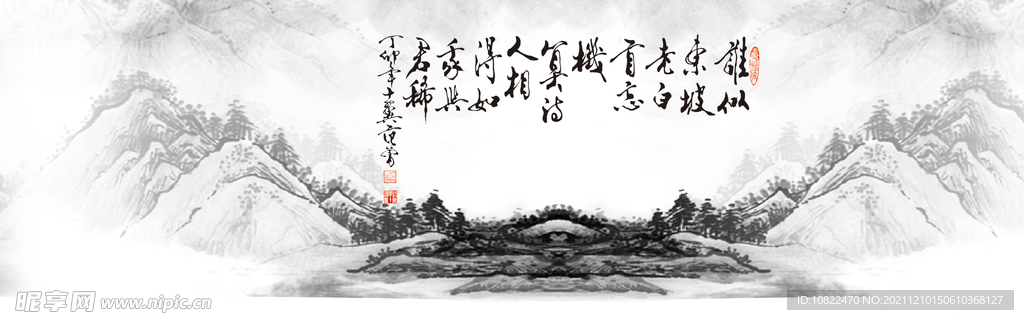 誰似
東坡
老白
首忘
機
算詩
人相
得如
我與
君稀
丁卯年十翼范曾
昵享网 www.nipic.cn
ID:10822470 NO:20211210150610368127